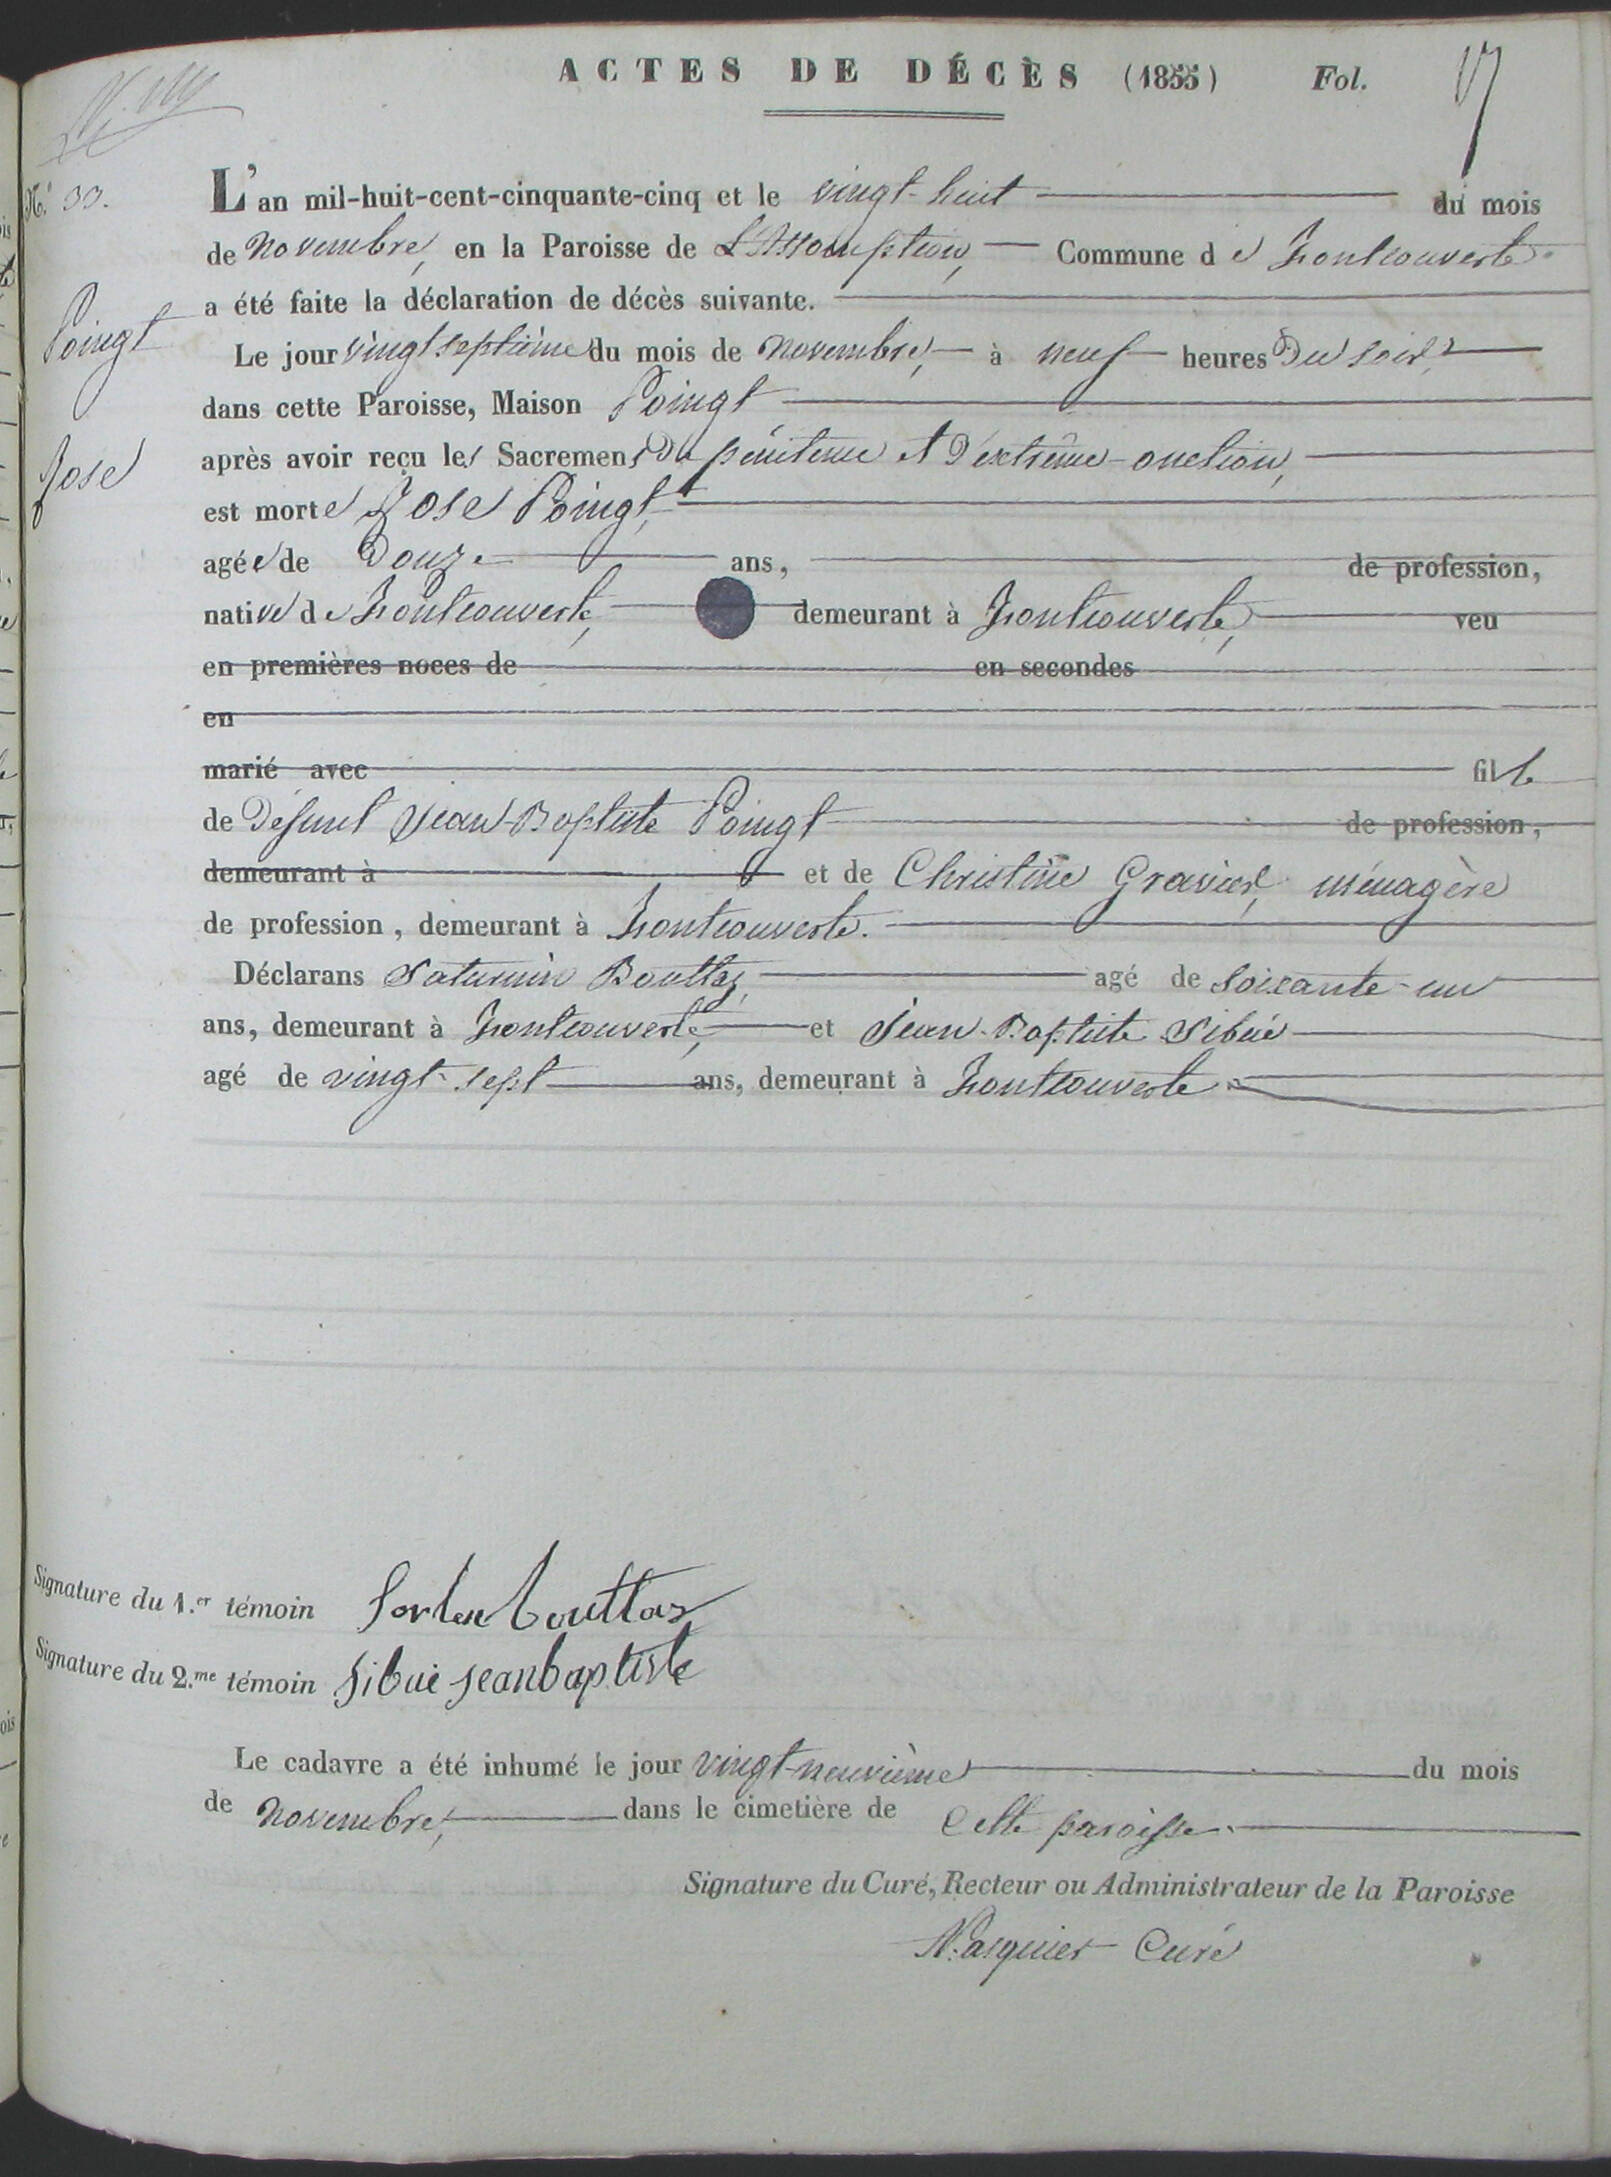 ACTES DE DÉCÈS (1855) Fol. 17
N.º 33.
Poingt
Rose
L'an mil-huit-cent-cinquante-cinq et le vingt-huit du mois
de novembre, en la Paroisse de L'Assomption, Commune de Fontcouverte
a été faite la déclaration de décès suivante.
Le jour vingt septième du mois de novembre, à neuf heures du soir,
dans cette Paroisse, Maison Poingt
après avoir reçu les Sacremens de pénitence et d'extrême-onction,
est morte Rose Poingt,
agée de Douze ans, de profession,
native de Fontcouverte, demeurant à Fontcouverte, veu
en premières noces de en secondes
en
marié avec fille
de Défunt Jean-Baptiste Poingt de profession,
demeurant à et de Christine Gravier, ménagère
de profession, demeurant à Fontcouverte.
Déclarans Saturnin Bouttaz, agé de soixante-un
ans, demeurant à Fontcouverte, et Jean-Baptiste Sibué
agé de vingt-sept ans, demeurant à Fontcouverte.
Signature du 1.er témoin bouttaz
Signature du 2.me témoin Sibué jean baptiste
Le cadavre a été inhumé le jour vingt-neuvième du mois
de novembre, dans le cimetière de cette paroisse.
Signature du Curé, Recteur ou Administrateur de la Paroisse
N. Pasquier Curé